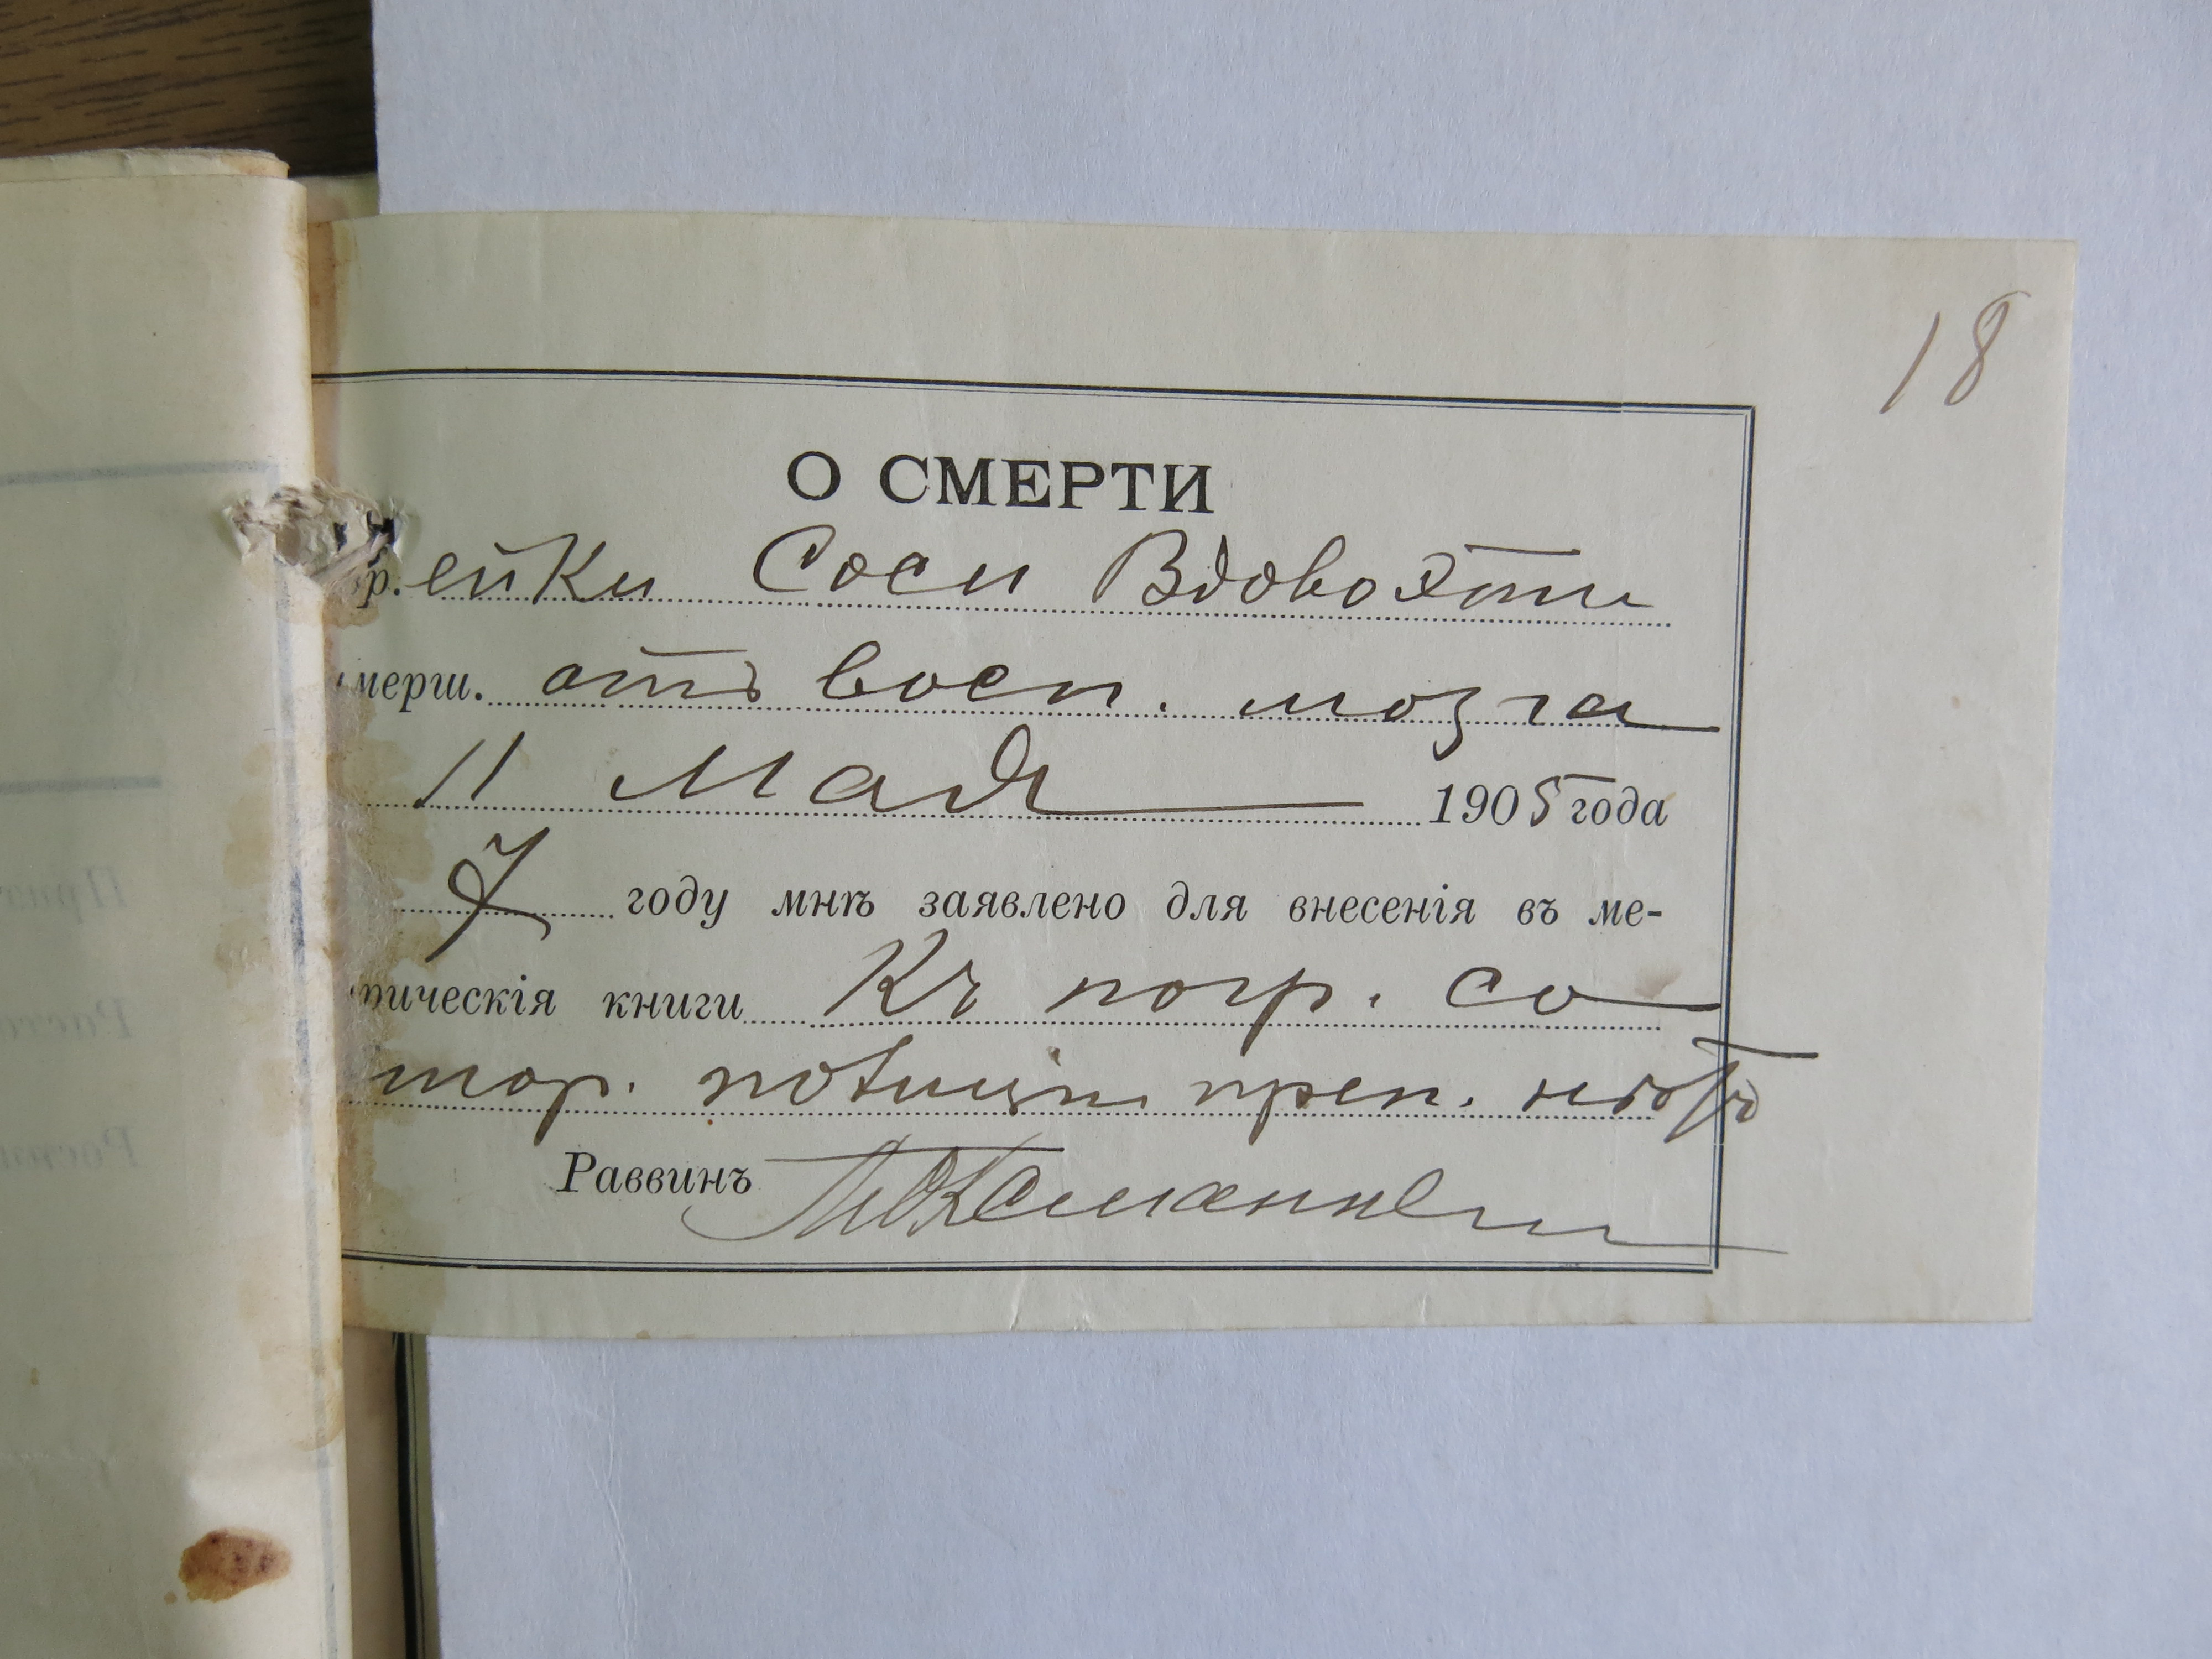 18
О СМЕРТИ
вр. ейки Соси Вдово
мерш. отъ восп. мозга
11 Мая 1905 года
7 году мнѣ заявлено для внесенія въ ме-
рическія книги Къ погр. со
стор. полиціи преп. нѣтъ
Раввинъ